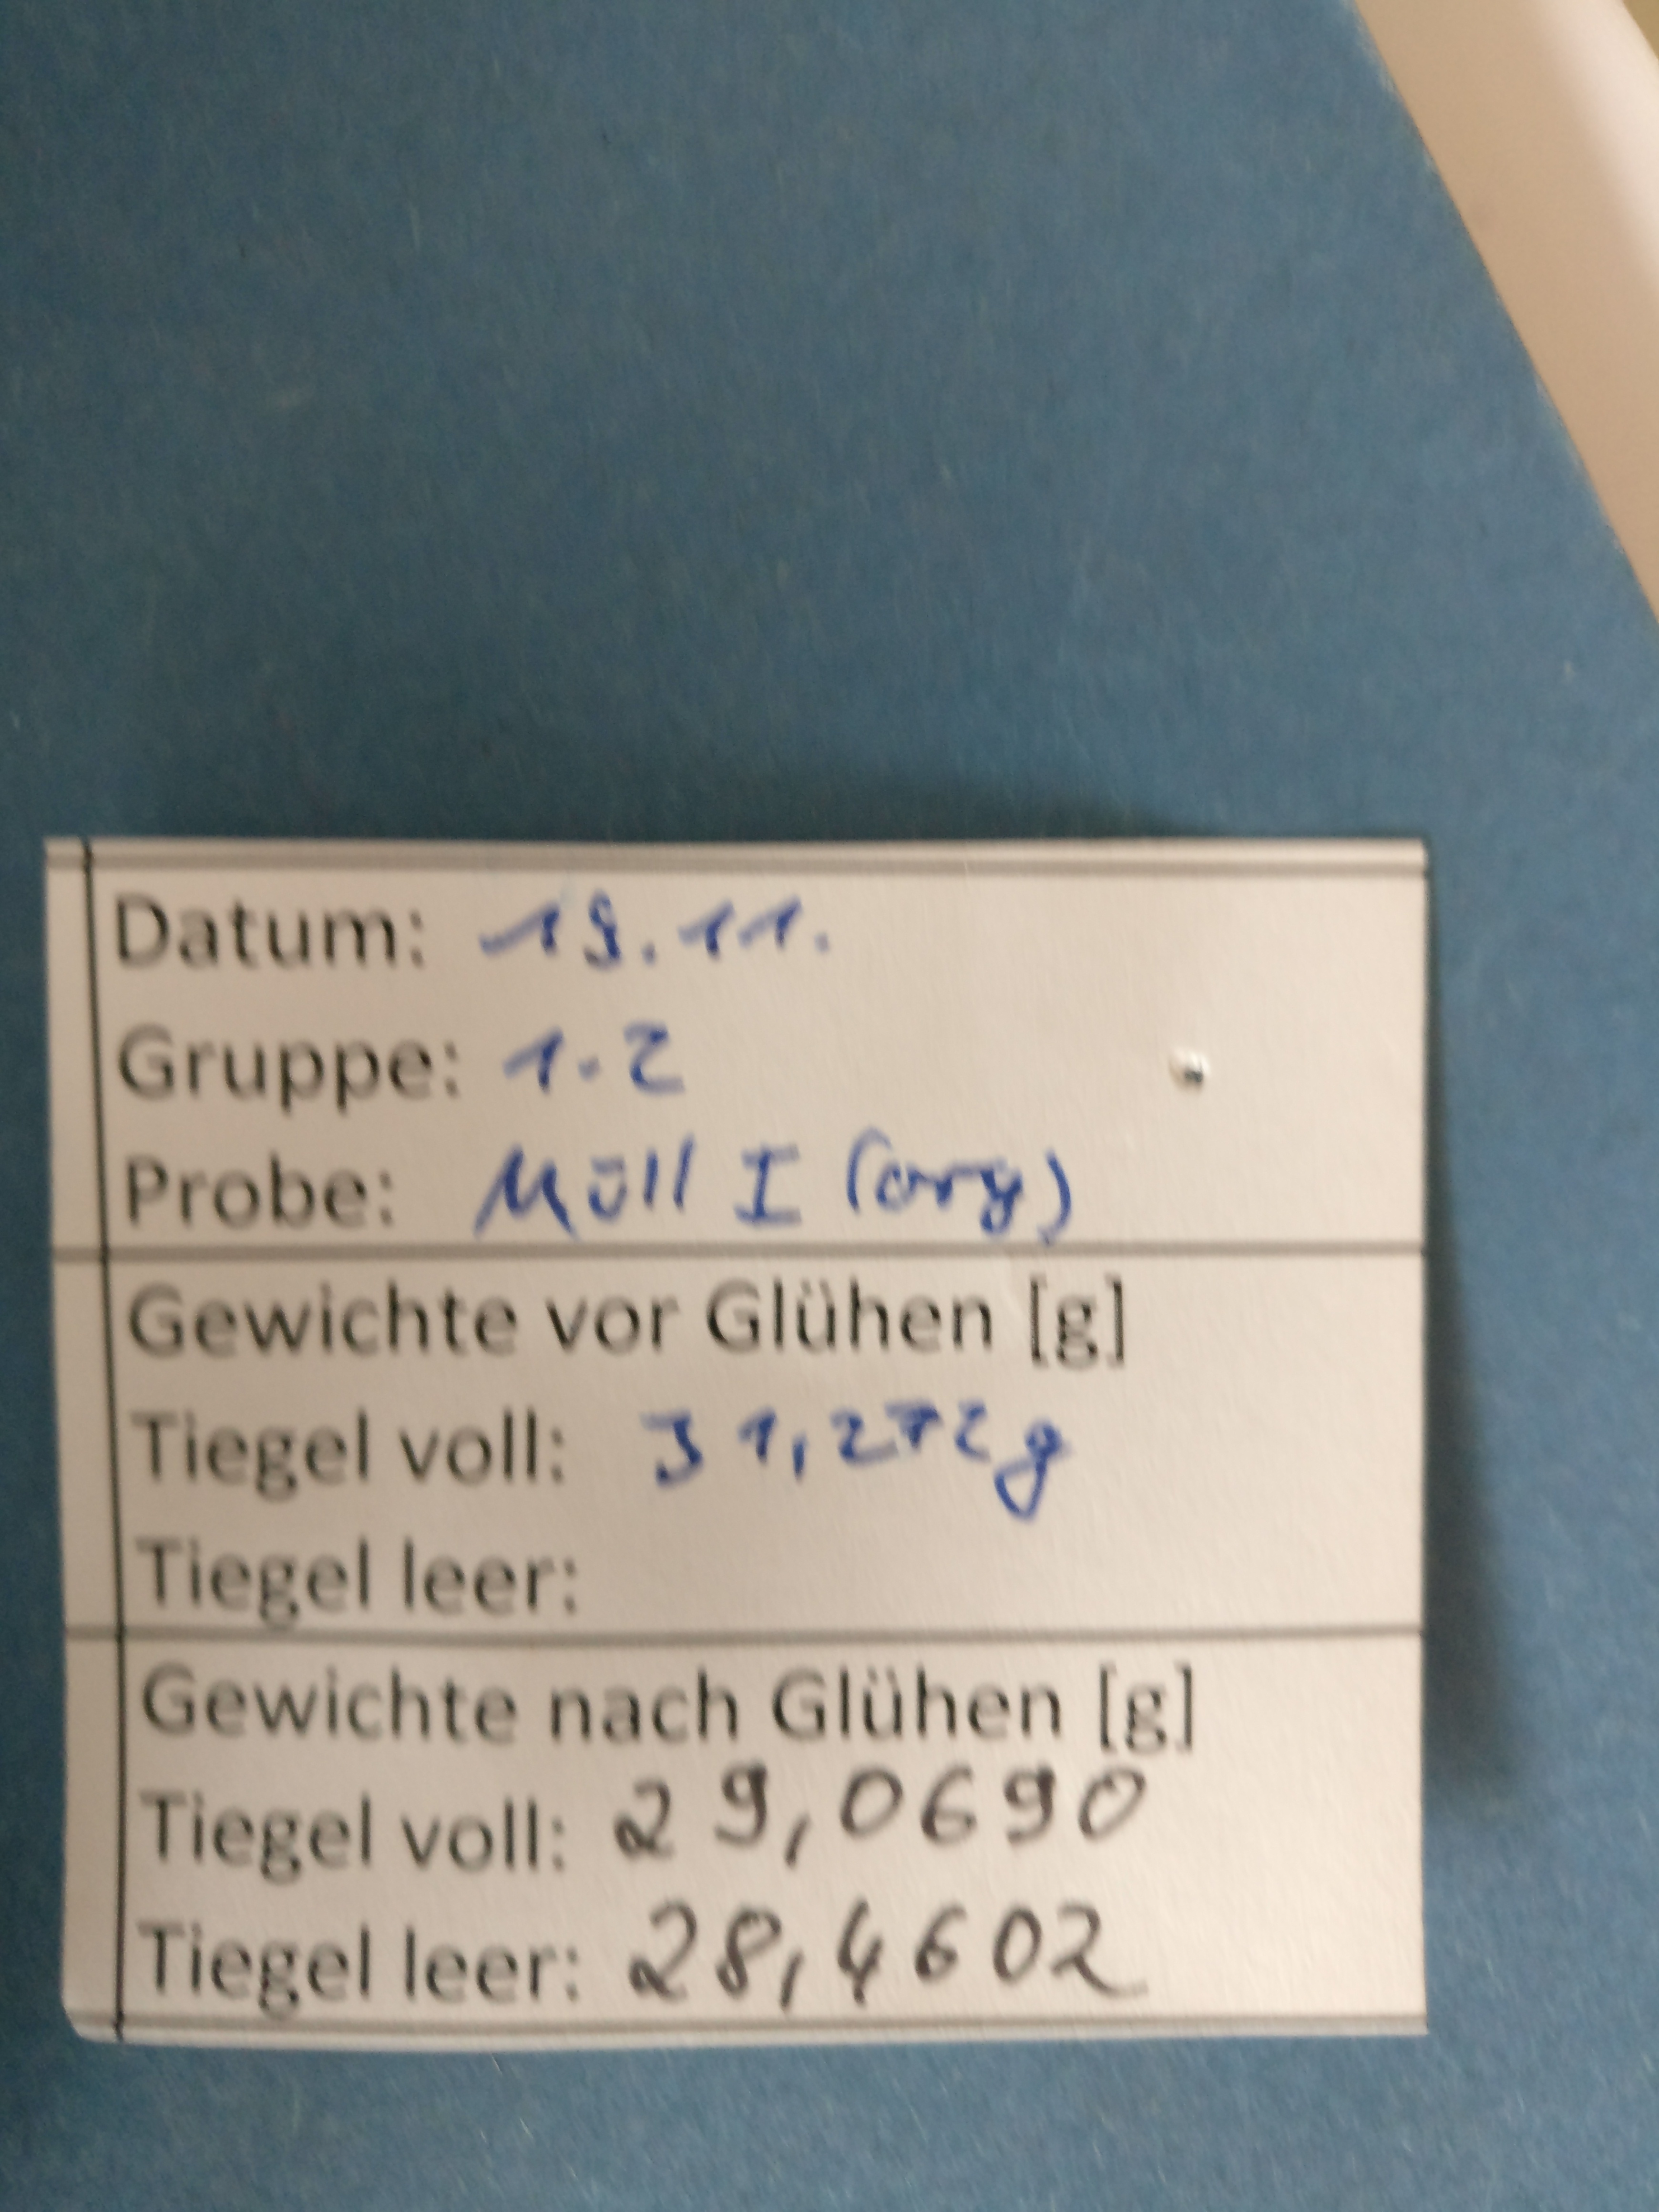 Datum: 19.11.
Gruppe: 1.2
Probe: Müll I (org)
Gewichte vor Glühen [g]
Tiegel voll: 31,272g
Tiegel leer:
Gewichte nach Glühen [g]
Tiegel voll: 29,0690
Tiegel leer: 28,4602